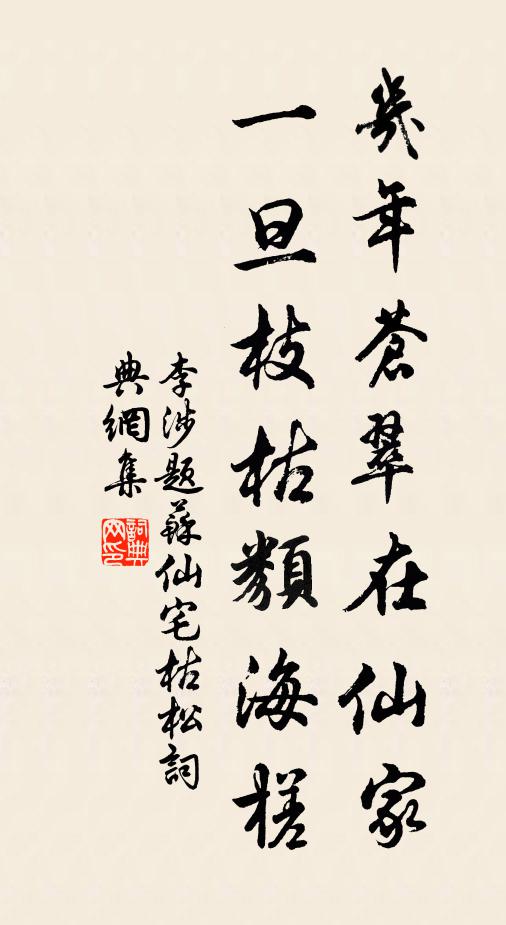 幾年蒼翠在仙家
一旦枝枯類海槎
李涉題蘇仙宅枯松詞
典網集
詞典網印